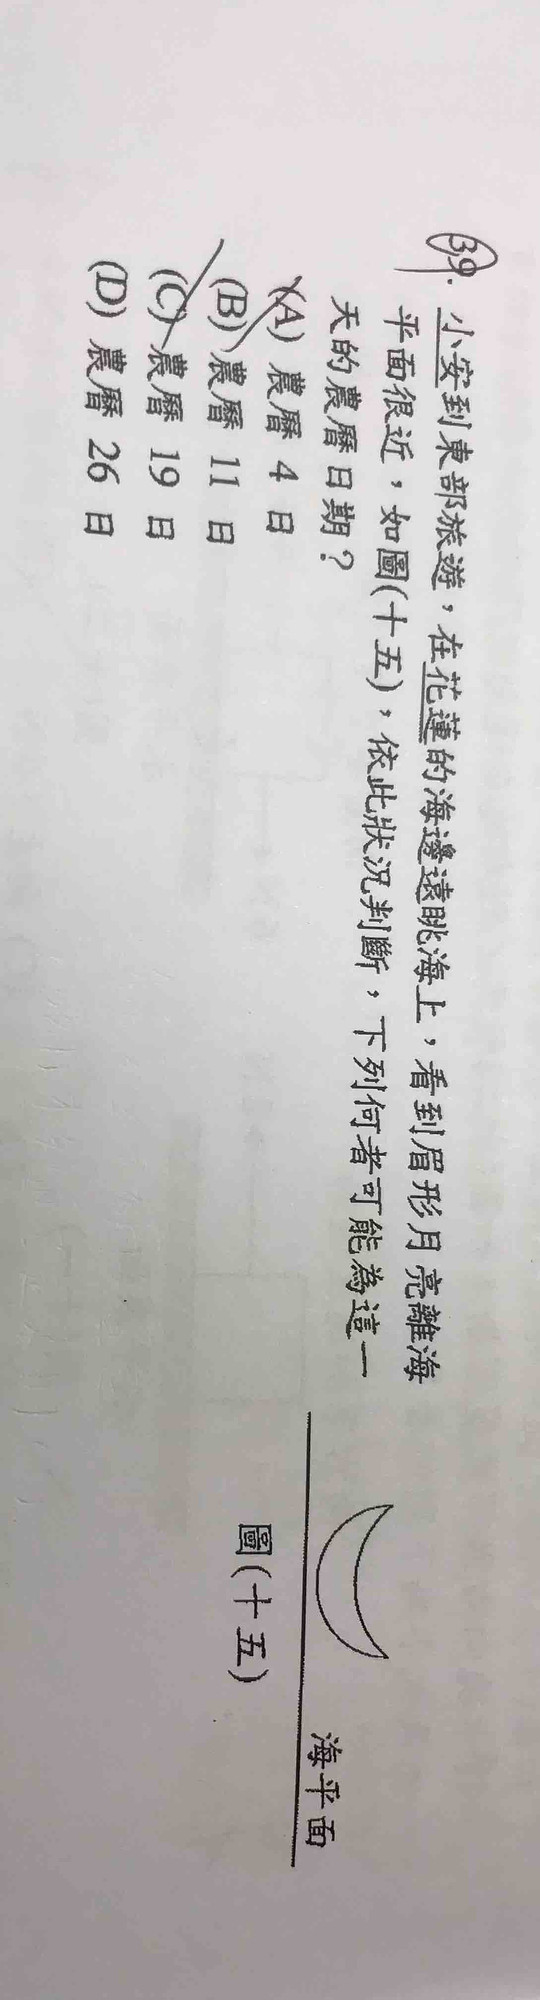 39. 小安到東部旅遊，在花蓮的海邊遠眺海上，看到眉形月亮離海
平面很近，如圖(十五)，依此狀況判斷，下列何者可能為這一
天的農曆日期？
(A) 農曆 4 日
(B) 農曆 11 日
(C) 農曆 19 日
(D) 農曆 26 日
海平面
圖(十五)